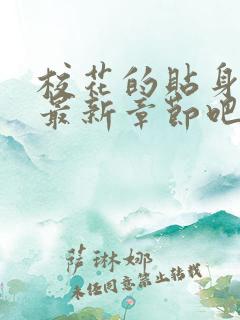 校花的贴身
最新章节吧
萨琳娜
未经同意禁止转载